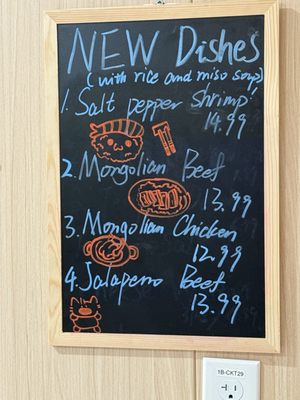 NEW Dishes
(with rice and miso soup)
1. Salt pepper shrimp
14.99
2. Mongolian Beef
13.99
3. Mongolian Chicken
12.99
4. Jalapeno Beef
13.99
1B-CKT29